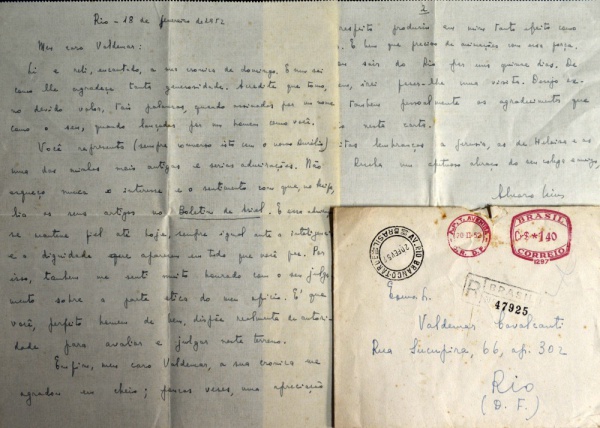 Rio - 18 de fevereiro de 1952
Meu caro Valdemar:
Li e reli, encantado, a sua cronica de domingo. E nem sei
como lhe agradeça tanta generosidade. Acredite que tomo,
no devido valor, tais palavras, quando assinadas por um nome
como o seu, quando lançadas por um homem como você.
Você representa (sempre converso isto com o nosso Aurélio)
uma das minhas mais antigas e sérias admirações. Não
esqueço nunca o interesse e o sentimento com que, no Recife,
lia os seus artigos no Boletim de Ariel. E essa admiração
se mantem pel até hoje, sempre igual ante a inteligencia
e a dignidade que aparecem em tudo que você faz. Por
isso, tambem me senti muito honrado com o seu julga-
mento sobre a parte etica do meu oficio. É que
você, perfeito homem de bem, dispõe realmente de autori-
dade para avaliar e julgar neste terreno.
Enfim, meu caro Valdemar, a sua cronica me
agradou em cheio; poucas vezes, uma apreciação
2
respeito produziu em mim tanto efeito como
E bem que preciso de animações com essa força.
sair do Rio por uns quinze dias. De
irei fazer-lhe uma visita. Desejo ex-
tambem pessoalmente os agradecimentos que
nesta carta.
lembranças a
Receba um afetuoso abraço do seu colega e amigo,
Alvaro Lins
AV. RIO BRANCO
BRASIL
BRASIL
Cr$ *1,40
CORREIO
1287
R
BRASIL
47925
Exmo. Sr.
Valdemar Cavalcanti
Rua Sucupira, 66, ap. 302
Rio
(D. F.)